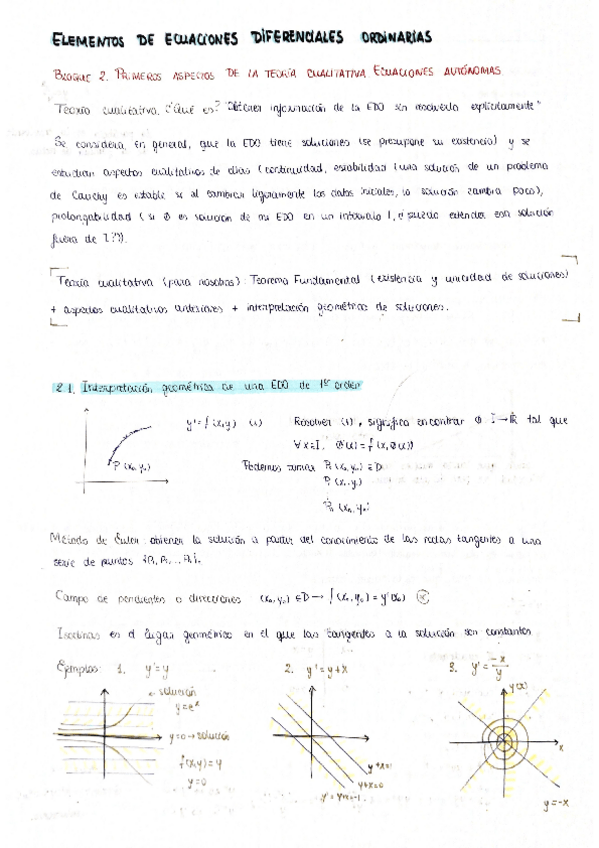 ELEMENTOS DE ECUACIONES DIFERENCIALES ORDINARIAS
BLOQUE 2. PRIMEROS ASPECTOS DE LA TEORÍA CUALITATIVA ECUACIONES AUTÓNOMAS
Teoría cualitativa. ¿Qué es? "Obtener información de la EDO sin resolverla explícitamente"
Se considera, en general, que la EDO tiene soluciones (se presupone su existencia) y se
estudian aspectos cualitativos de ellas (continuidad, estabilidad (una solución de un problema
de Cauchy es estable si al cambiar ligeramente los datos iniciales, la solución cambia poco),
prolongabilidad (si ϕ es solución de mi EDO en un intervalo I, ¿puedo extender esa solución
fuera de I?)).
Teoría cualitativa (para nosotros): Teorema Fundamental (existencia y unicidad de soluciones)
+ aspectos cualitativos anteriores + interpretación geométrica de soluciones.
2.1. Interpretación geométrica de una EDO de 1er orden
y' = f(x,y) (1) Resolver (1), significa encontrar ϕ: I → ℝ tal que
∀x∈I, ϕ'(x) = f(x, ϕ(x))
P₀(x₀,y₀) Podemos P₀(x₀,y₀) ∈ D
P₁(x₁,y₁)
Pₙ(xₙ,yₙ)
Método de Euler: obtener la solución a partir del conocimiento de las rectas tangentes a una
serie de puntos {P₀, P₁, ..., Pₙ}.
Campo de pendientes o direcciones (x₀,y₀) ∈ D → f(x₀,y₀) = y'(x₀)
Isoclinas es el lugar geométrico en el que las tangentes a la solución son constantes
Ejemplos: 1. y' = y 2. y' = y+x 3. y' = -x/y
← solución
y = eˣ
y=0 → solución
f(x,y) = y
y=0
y+x=0
y(x)
x
y=-x